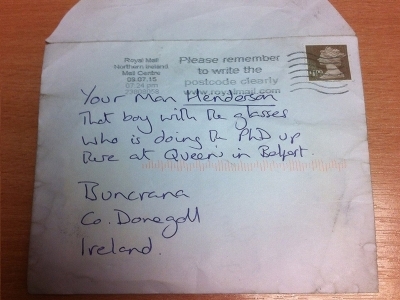 Royal Mail
Northern Ireland
Mail Centre
09.07.15
07.24 pm
Please remember
to write the
postcode clearly
www.royalmail.com
Your Man Henderson
That boy with the glasses
who is doing the PhD up
here at Queen's in Belfast.
Buncrana
Co. Donegall
Ireland.